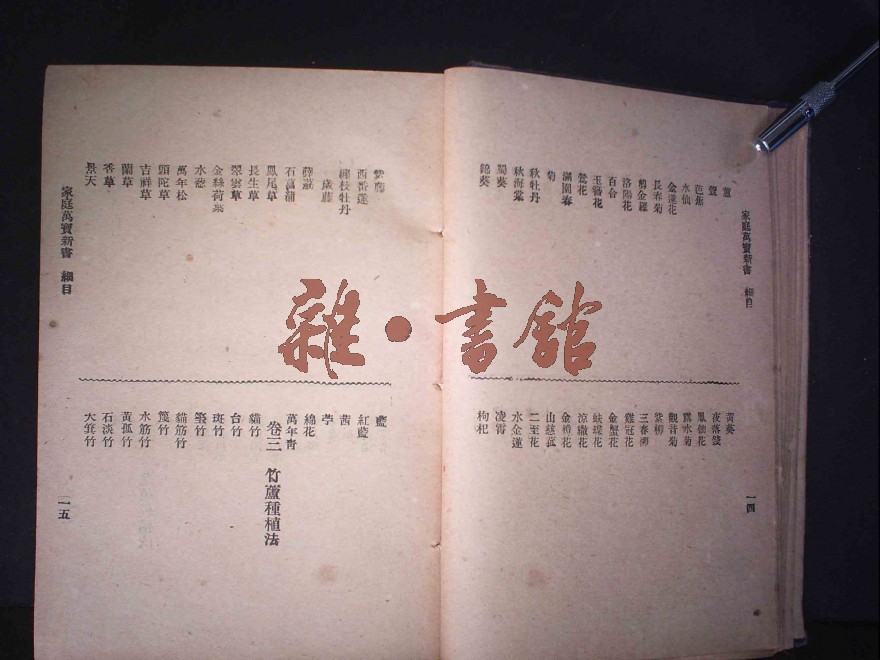 家庭萬寶新書 細目
蕙
萱
芭蕉
水仙
金蓮花
長春菊
剪金羅
洛陽花
百合
玉簪花
鶯花
滿園春
菊
秋牡丹
秋海棠
蜀葵
錦葵
黃葵
夜落金錢
鳳仙花
滴水菊
觀音菊
紫柳
三春柳
雞冠花
金蟹花
蛺蝶花
涼繖花
金樽花
山慈菰
二至花
水金蓮
凌霄
枸杞
一四
雜·書館
紫藤
西番蓮
纏枝牡丹
歲藤
薜荔
石菖蒲
鳳尾草
長生草
翠雲草
金絲荷葉
水葱
萬年松
頭陀草
吉祥草
蘭草
香草
景天
家庭萬寶新書 細目
藍
紅藍
茜
苧
綿花
萬年靑
卷三 竹蘆種植法
貓竹
台竹
斑竹
貓筋竹
水筋竹
黃孤竹
石淡竹
大箕竹
一五